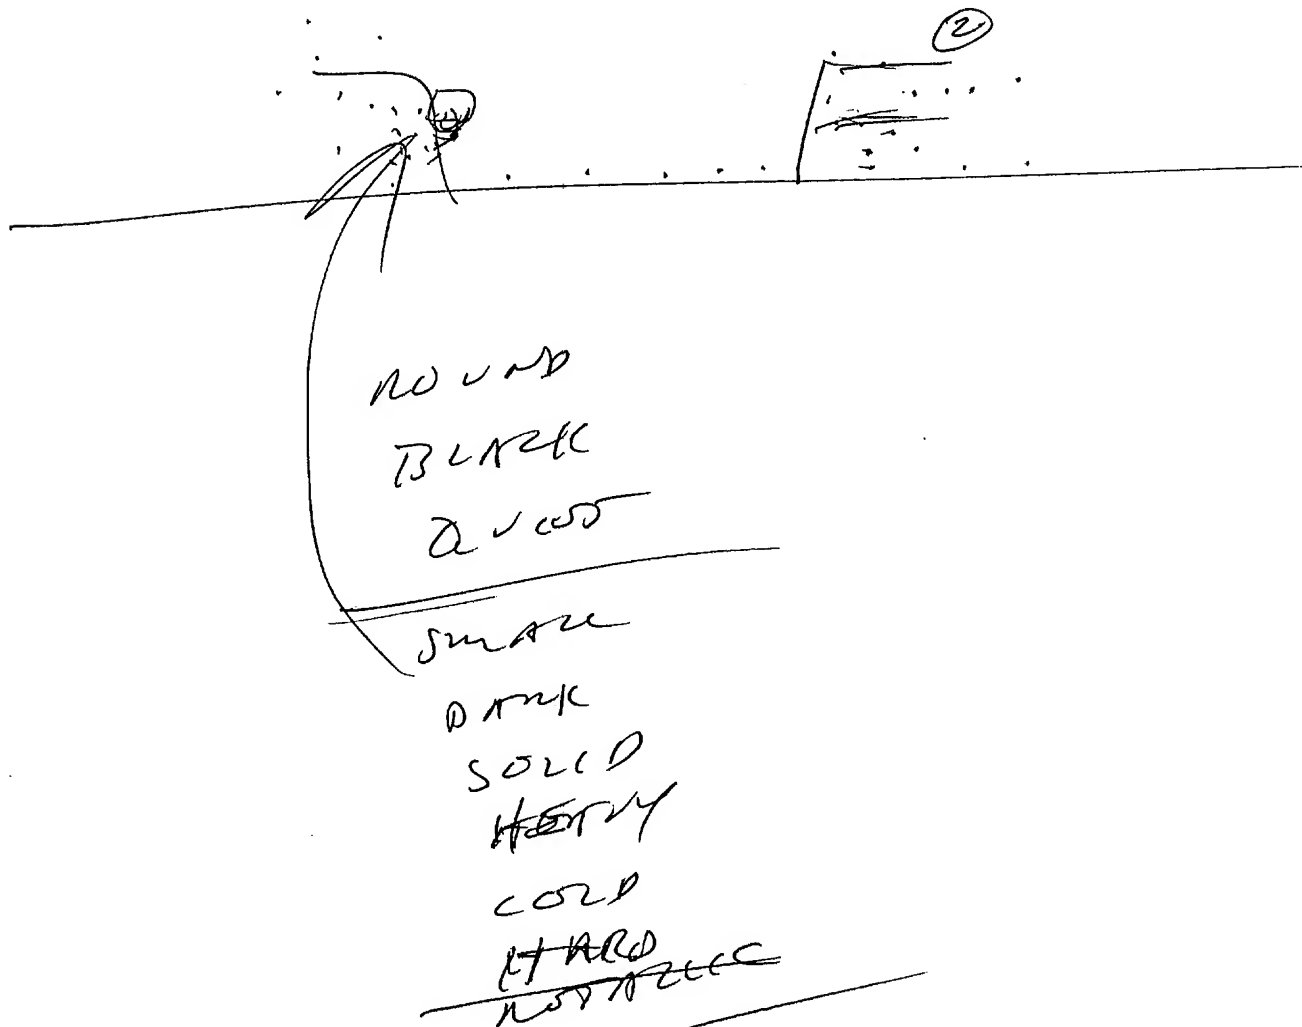 ②
ROUND
BLACK
SMALL
DARK
SOLID
HEAVY
COLD
HARD
METALLIC